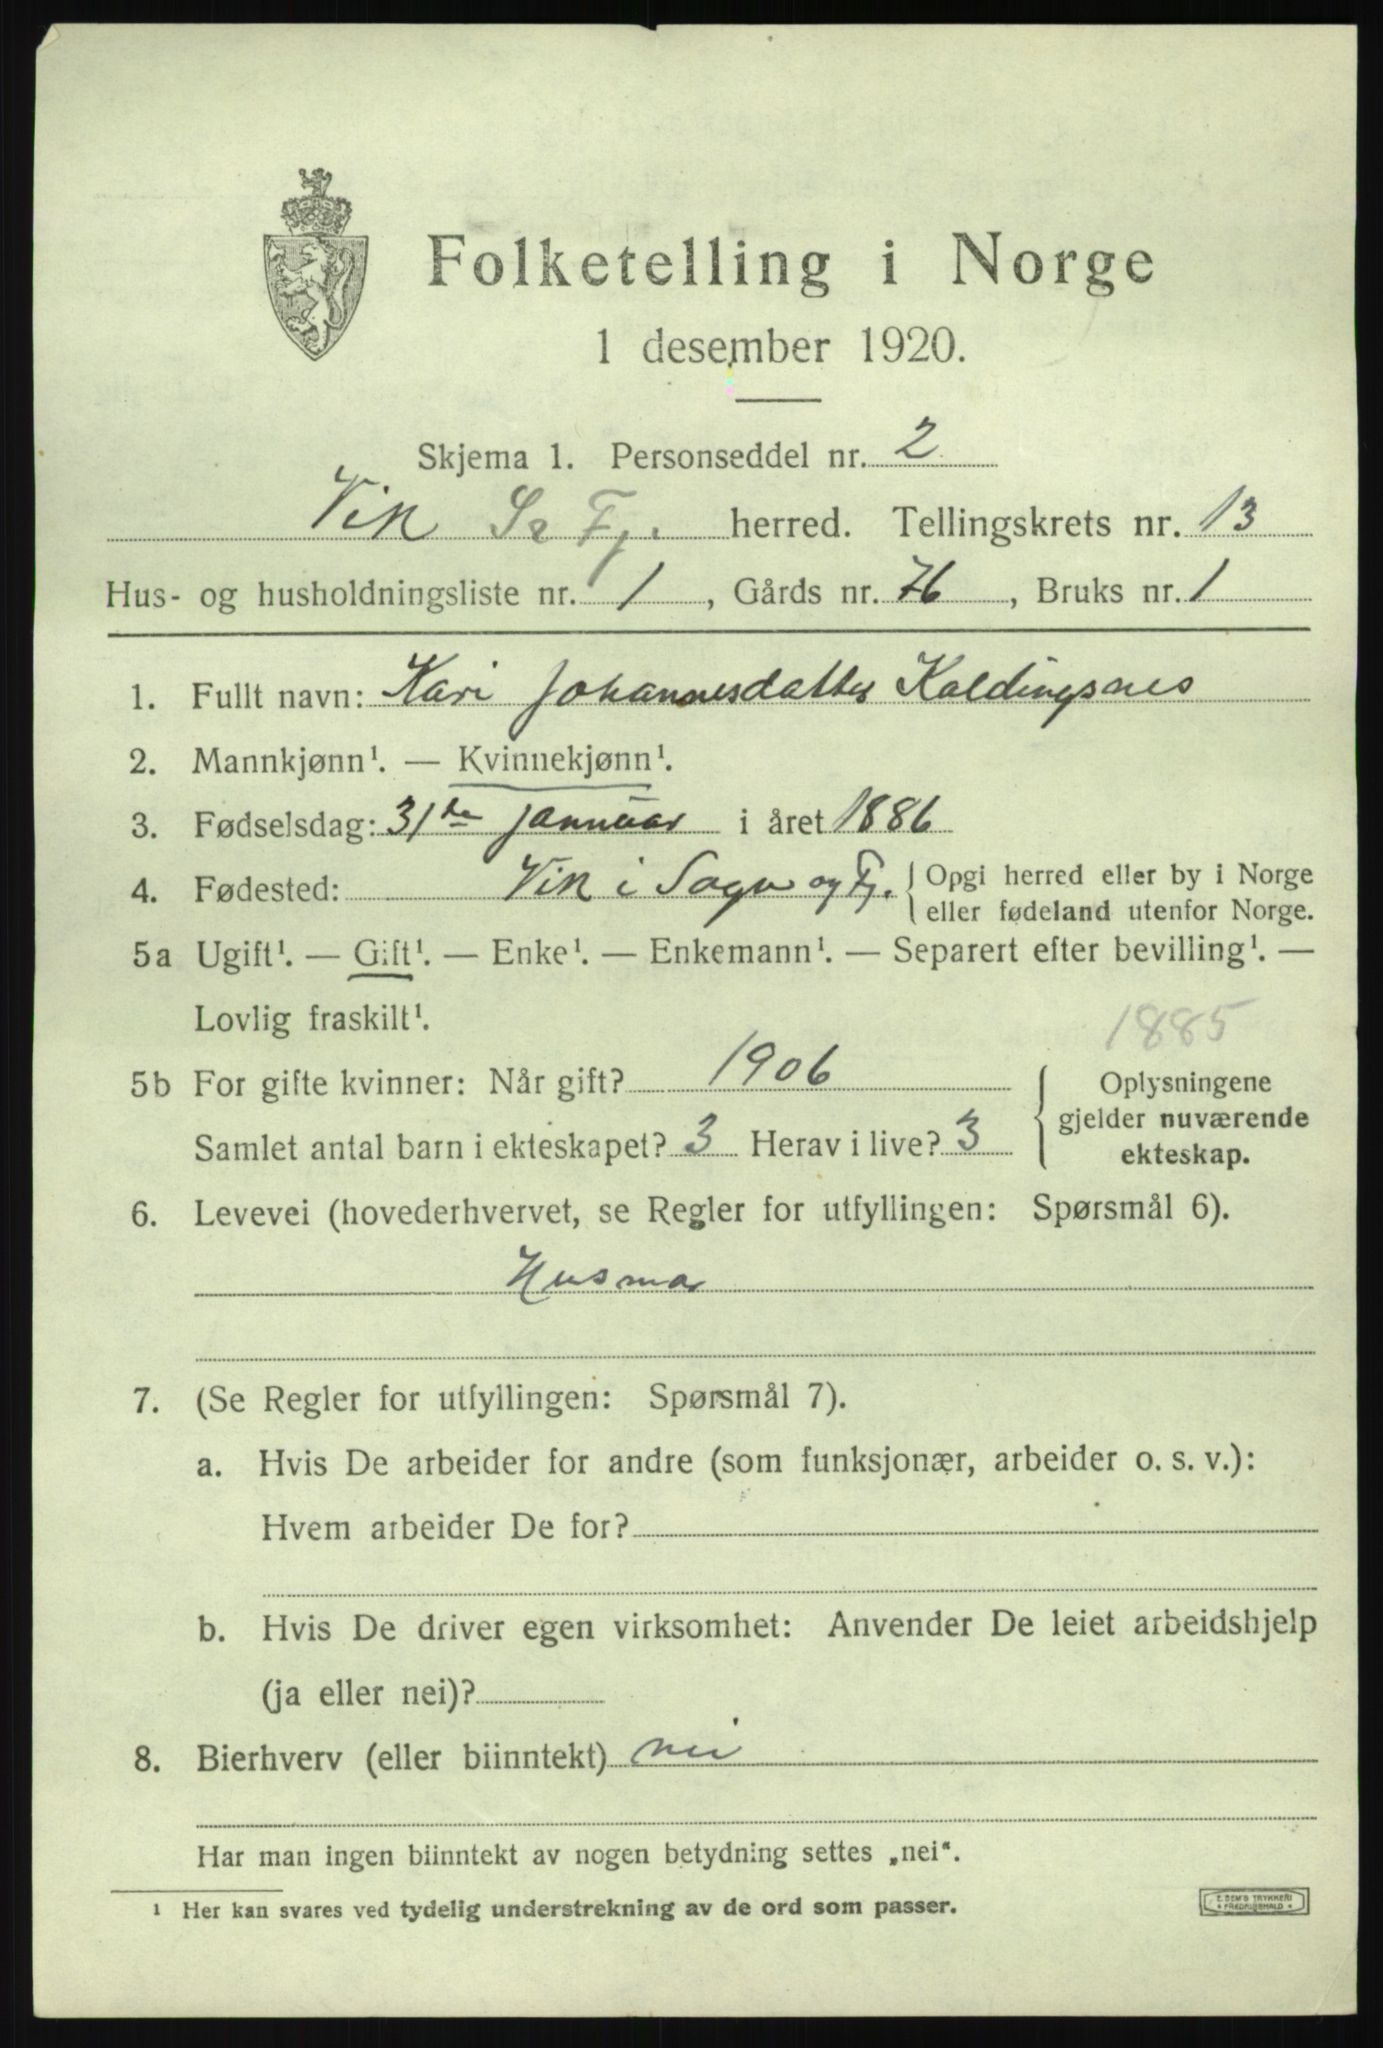 Folketelling i Norge
1 desember 1920.
Skjema 1. Personseddel nr. 2
Vik S. Fj. herred. Tellingskrets nr. 13
Hus- og husholdningsliste nr. 1, Gårds nr. 76, Bruks nr. 1
1. Fullt navn: Kari Johannesdatter Kaldingsnes
2. Mannkjønn¹. — Kvinnekjønn¹.
3. Fødselsdag: 31te januar i året 1886
4. Fødested: Vik i Sogn og Fj. { Opgi herred eller by i Norge
eller fødeland utenfor Norge.
5a Ugift¹. — Gift¹. — Enke¹. — Enkemann¹. — Separert efter bevilling¹. —
Lovlig fraskilt¹.
1885
5b For gifte kvinner: Når gift? 1906
Samlet antal barn i ekteskapet? 3 Herav i live? 3
{ Oplysningene
gjelder nuværende
ekteskap.
6. Levevei (hovederhvervet, se Regler for utfyllingen: Spørsmål 6).
Husmor
7. (Se Regler for utfyllingen: Spørsmål 7).
a. Hvis De arbeider for andre (som funksjonær, arbeider o. s. v.):
Hvem arbeider De for?
b. Hvis De driver egen virksomhet: Anvender De leiet arbeidshjelp
(ja eller nei)?
8. Bierhverv (eller biinntekt) nei
Har man ingen biinntekt av nogen betydning settes „nei“.
¹ Her kan svares ved tydelig understrekning av de ord som passer.
E. SEM'S TRYKKERI
* FREDRIKSHALD *